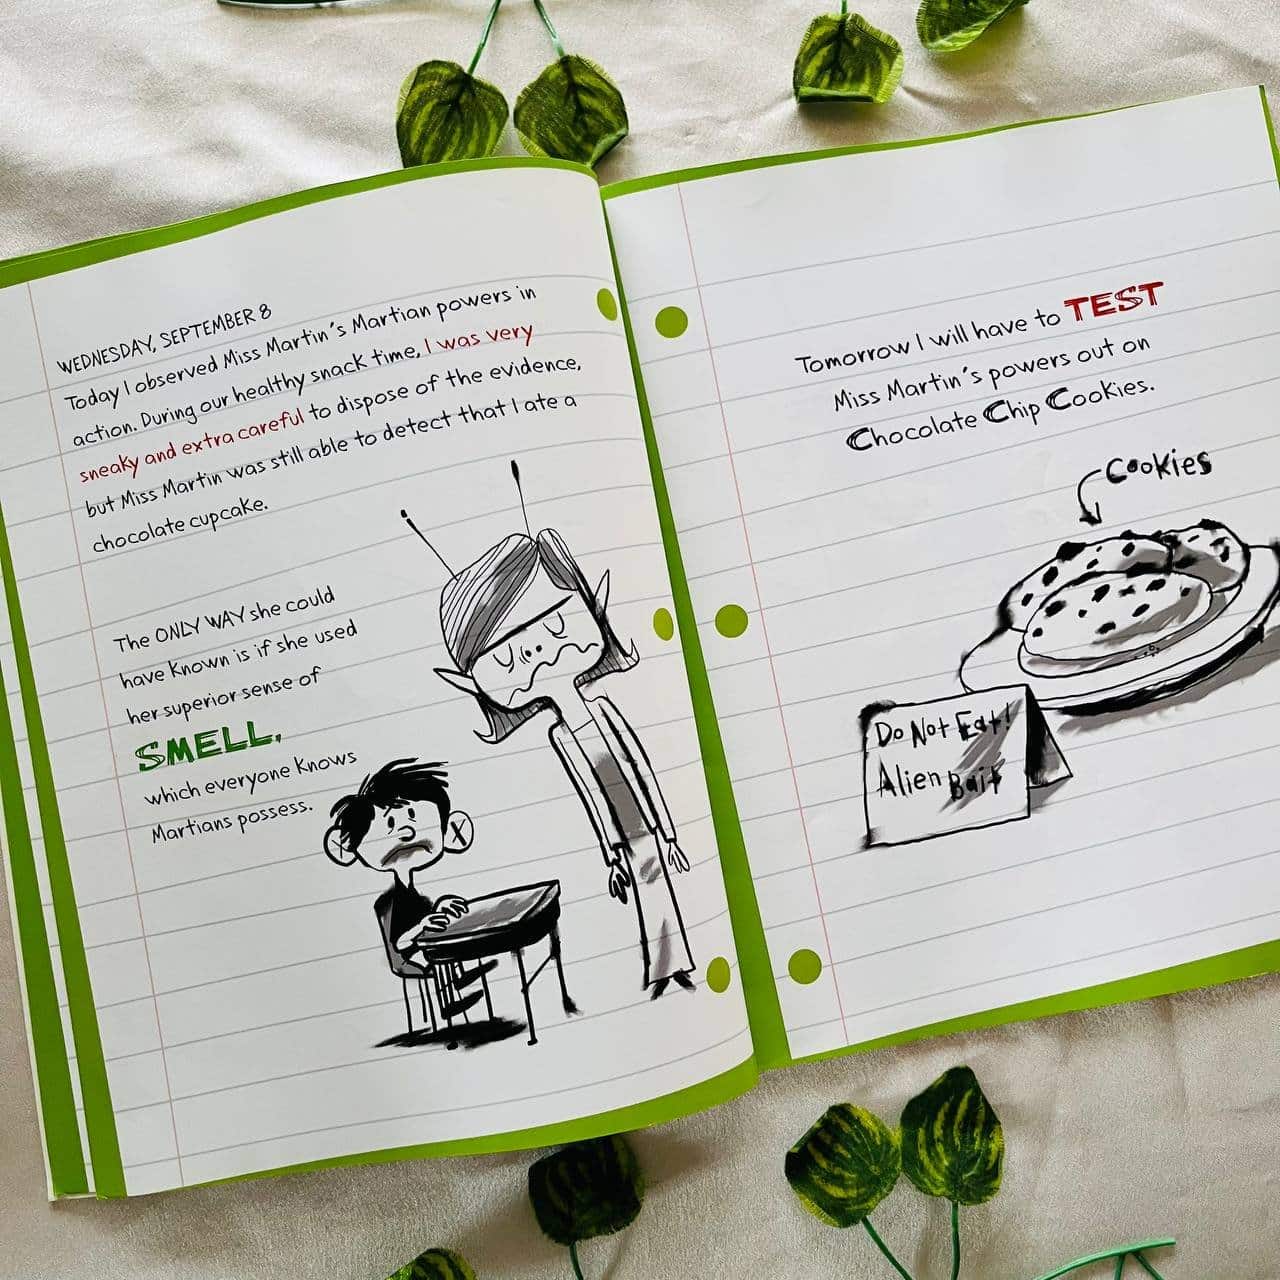 WEDNESDAY, SEPTEMBER 8
Today I observed Miss Martin's Martian powers in
action. During our healthy snack time, I was very
sneaky and extra careful to dispose of the evidence,
but Miss Martin was still able to detect that I ate a
chocolate cupcake.
The ONLY WAY she could
have known is if she used
her superior sense of
SMELL,
which everyone knows
Martians possess.
Tomorrow I will have to TEST
Miss Martin's powers out on
Chocolate Chip Cookies.
Cookies
Do Not Eat!
Alien Bait